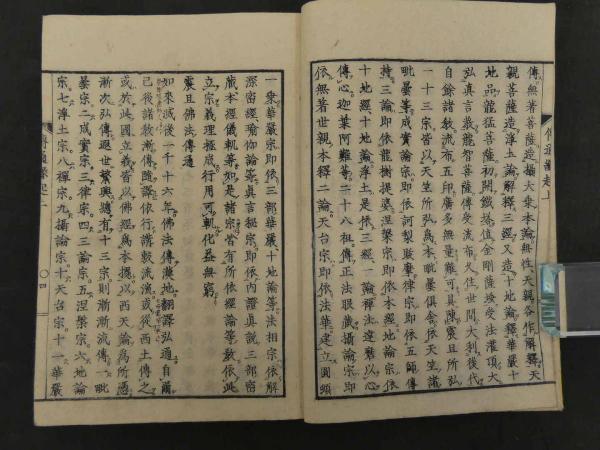 傳無著菩薩造攝大乗本論無性天親各作解釋天
親菩薩造淨土論解釋三經又造十地論釋華嚴十
地品龍猛菩薩初開鐵塔値金剛薩埵受法灌頂大
弘真言教龍智菩薩傳受流布久住世間大利後代
自餘諸教流布五印廣多無量難可具陳震旦所弘
一十三宗皆以天竺所弘爲本毗曇俱舎依天竺諸
毗曇等成實論宗即依訶梨跋摩律宗即依五師傳
持三論宗即依龍樹提婆涅槃宗即依本經地論宗依
十地經十地論淨土是依三經一論禪法達磨以心
傳心迦葉阿難等二十八祖傳正法眼藏攝論宗即
依無著世親本釋二論天台宗即依法華建立圓頓
一乗華嚴宗即依三部華嚴十地論等法相宗依解
深密經瑜伽論等真言秘宗即依内證真説三部密
藏本經儀軌等如是諸宗皆有所依經論等教依此
立宗義理極成行用可軌化益無窮
震旦佛法傳通
如來滅後一千十六年佛法傳漢地翻譯弘通自爾
已後諸教漸傳隨譯依行講敷流演或從西土傳之
或於此國立義皆以佛經爲本據以西天論爲所憑
漸次弘傳遐世繁興總有十三宗則漸漸流傳一毗
曇宗二成實宗三律宗四三論宗五涅槃宗六地論
宗七淨土宗八禪宗九攝論宗十天台宗十一華嚴